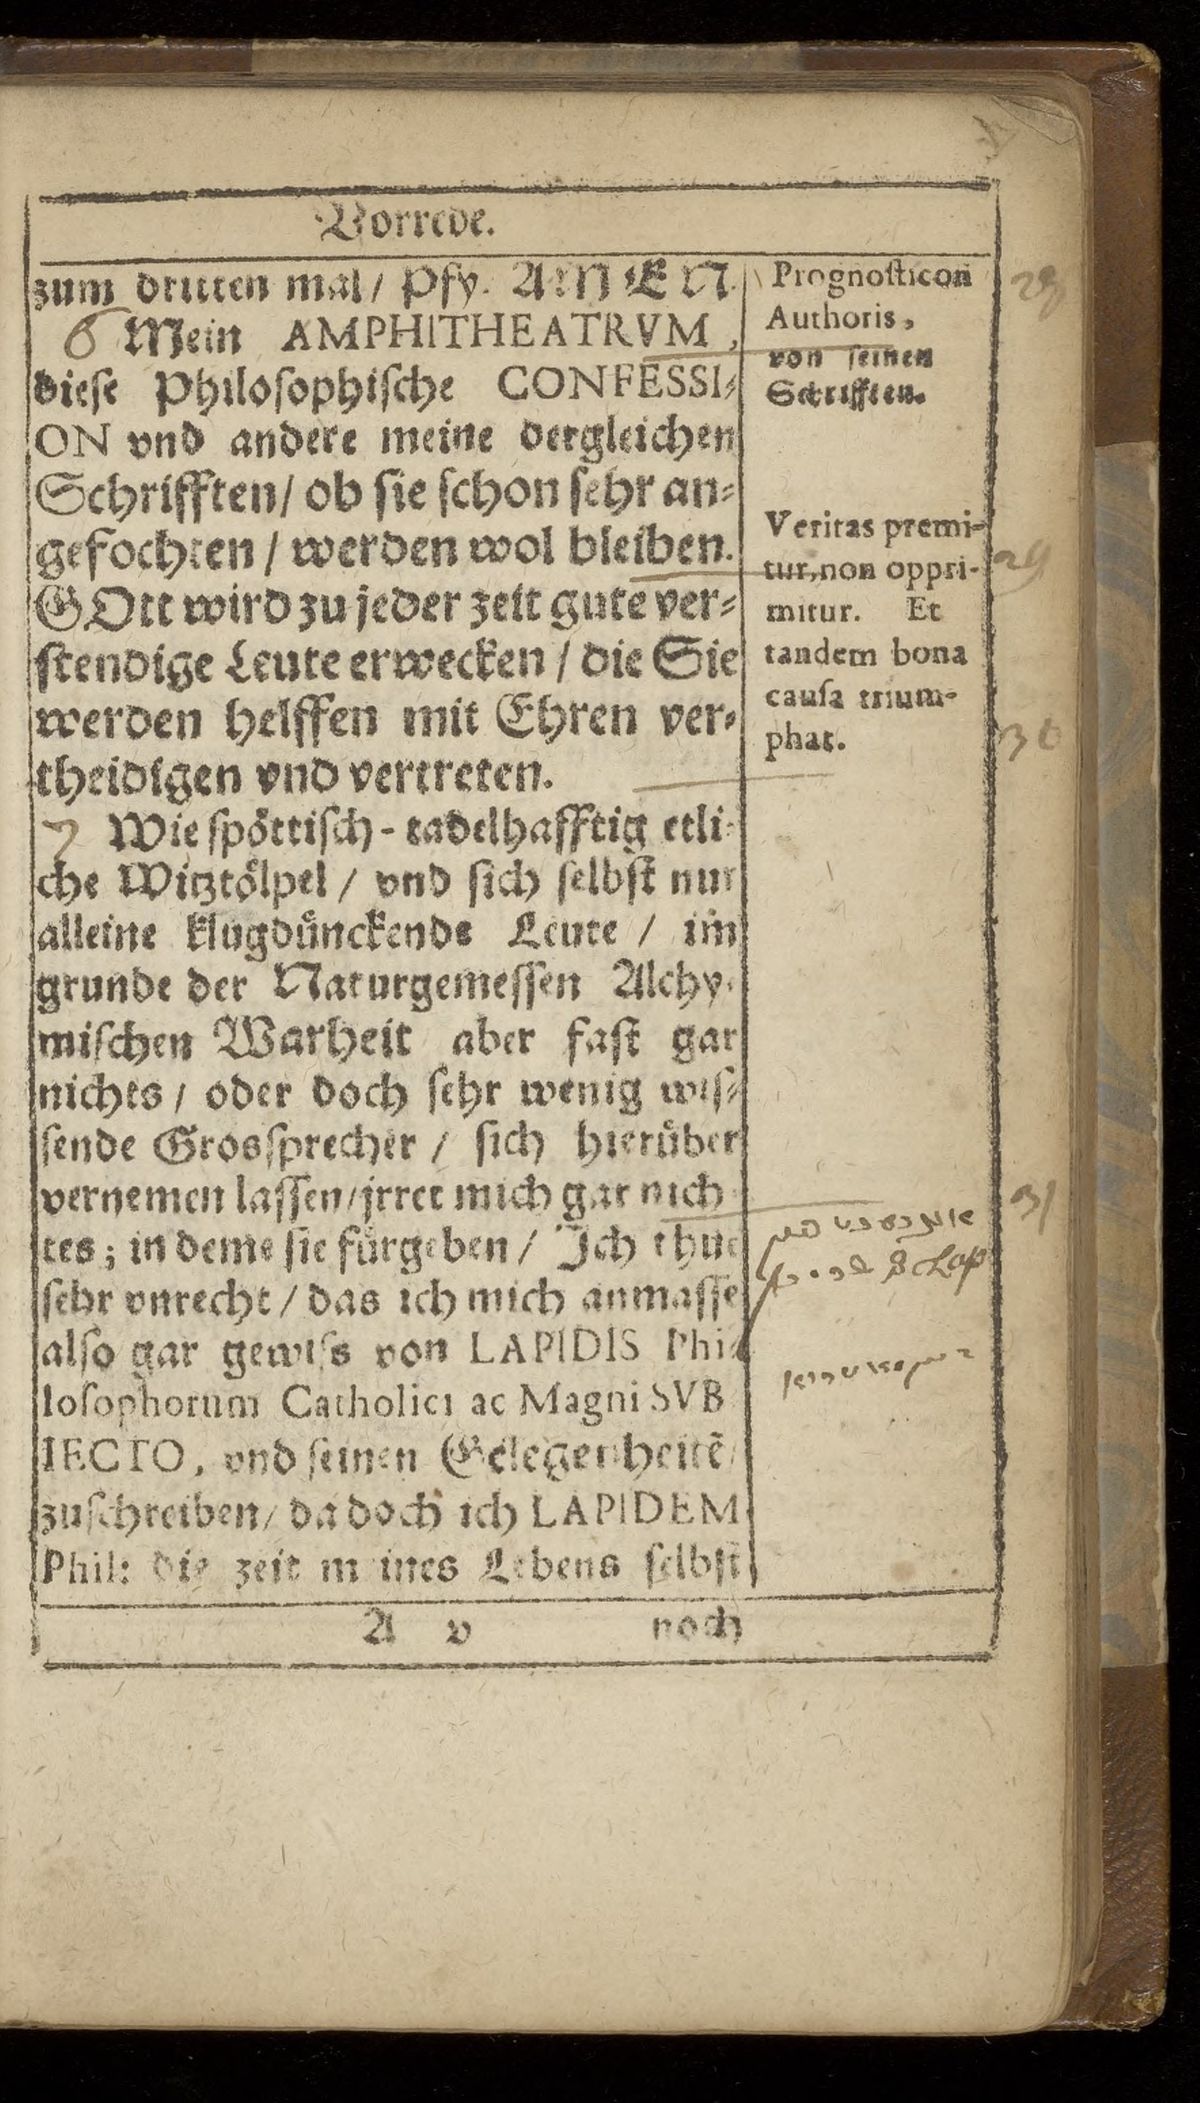 Vorrede.
zum dritten mal / Pfy. AMEN.
6 Mein AMPHITHEATRVM,
diese Philosophische CONFESSI-
ON vnd andere meine dergleichen
Schrifften / ob sie schon sehr an-
gefochten / werden wol bleiben.
GOtt wird zu jeder zeit gute ver-
stendige Leute erwecken / die Sie
werden helffen mit Ehren ver-
theidigen vnd vertreten.
7 Wie spöttisch-tadelhafftig etli-
che Witztölpel / vnd sich selbst nur
alleine klugdünckende Leute / im
grunde der Naturgemessen Alchy-
mischen Warheit aber fast gar
nichts / oder doch sehr wenig wis-
sende Grossprecher / sich hierüber
vernemen lassen / jrret mich gar nich
tes; in deme sie fürgeben / Ich thue
sehr vnrecht / das ich mich anmasse
also gar gewiss von LAPIDIS Phi-
losophorum Catholici ac Magni SVB
IECTO, vnd seinen Gelegenheitẽ /
zuschreiben / da doch ich LAPIDEM
Phil: die zeit meines Lebens selbst
A v noch
Prognosticon
Authoris,
von seinen
Schrifften.
Veritas premi-
tur, non oppri-
mitur. Et
tandem bona
causa trium-
phat.
28
29
30
31
Lap